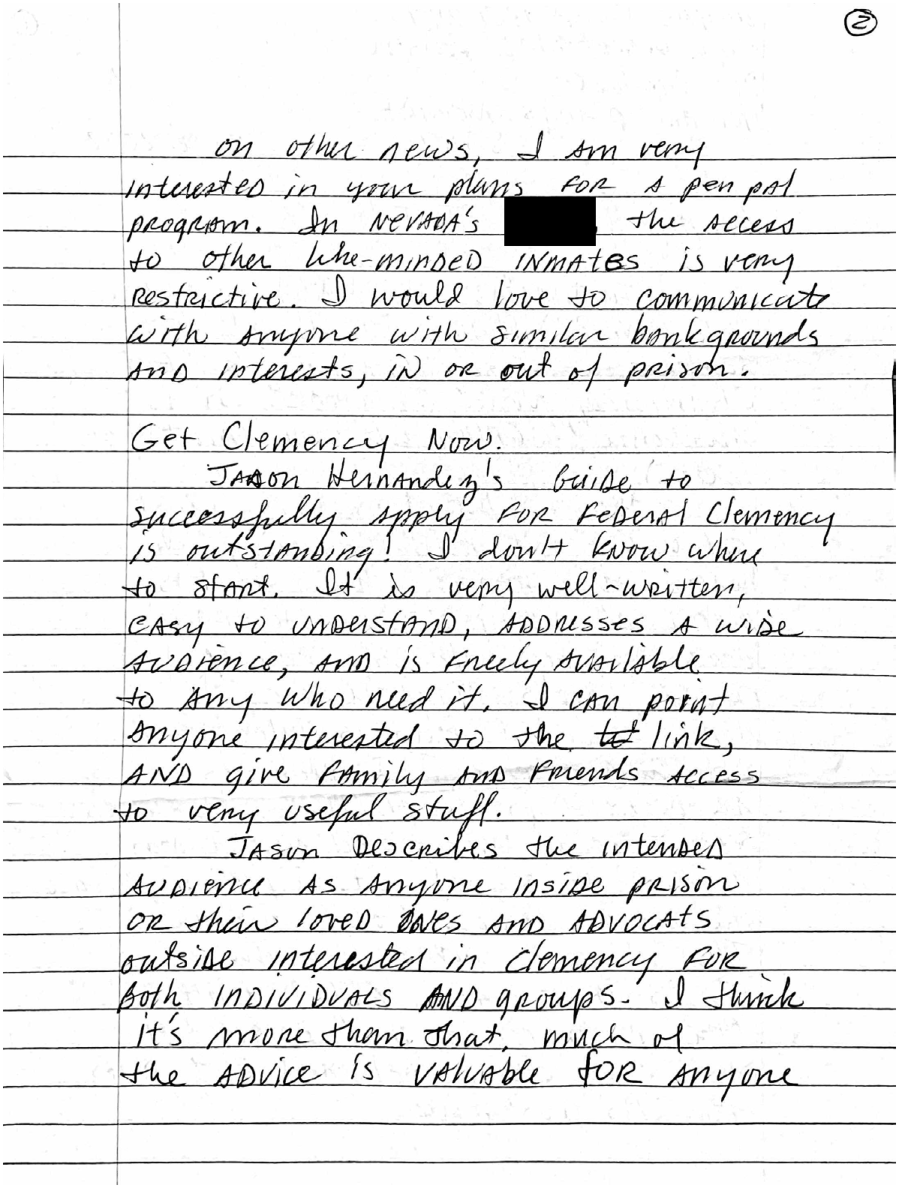 2
on other news, I Am very
interested in your plans FOR A pen pal
program. In NEVADA's , the access
to other like-minded INMATES is very
restrictive. I would love to communicate
with anyone with similar bankgrounds
AND interests, IN OR out of prison.
Get Clemency Now.
JASON Hernandez's Guide to
successfully apply FOR Federal Clemency
is outstanding! I don't know where
to start. It is very well-written,
easy to understand, ADDRESSES A wide
AUDIENCE, AND is Freely Available
to Any who need it. I can point
anyone interested to the link,
AND give FAmily AND Friends Access
to very useful stuff.
JASON Describes the intended
AUDIENCE AS Anyone inside prison
OR their loved ONES AND ADVOCATS
outside interested in Clemency FOR
Both INDIVIDUALS AND groups. I think
it's more than that, much of
the ADVICE is VALUABLE FOR Anyone